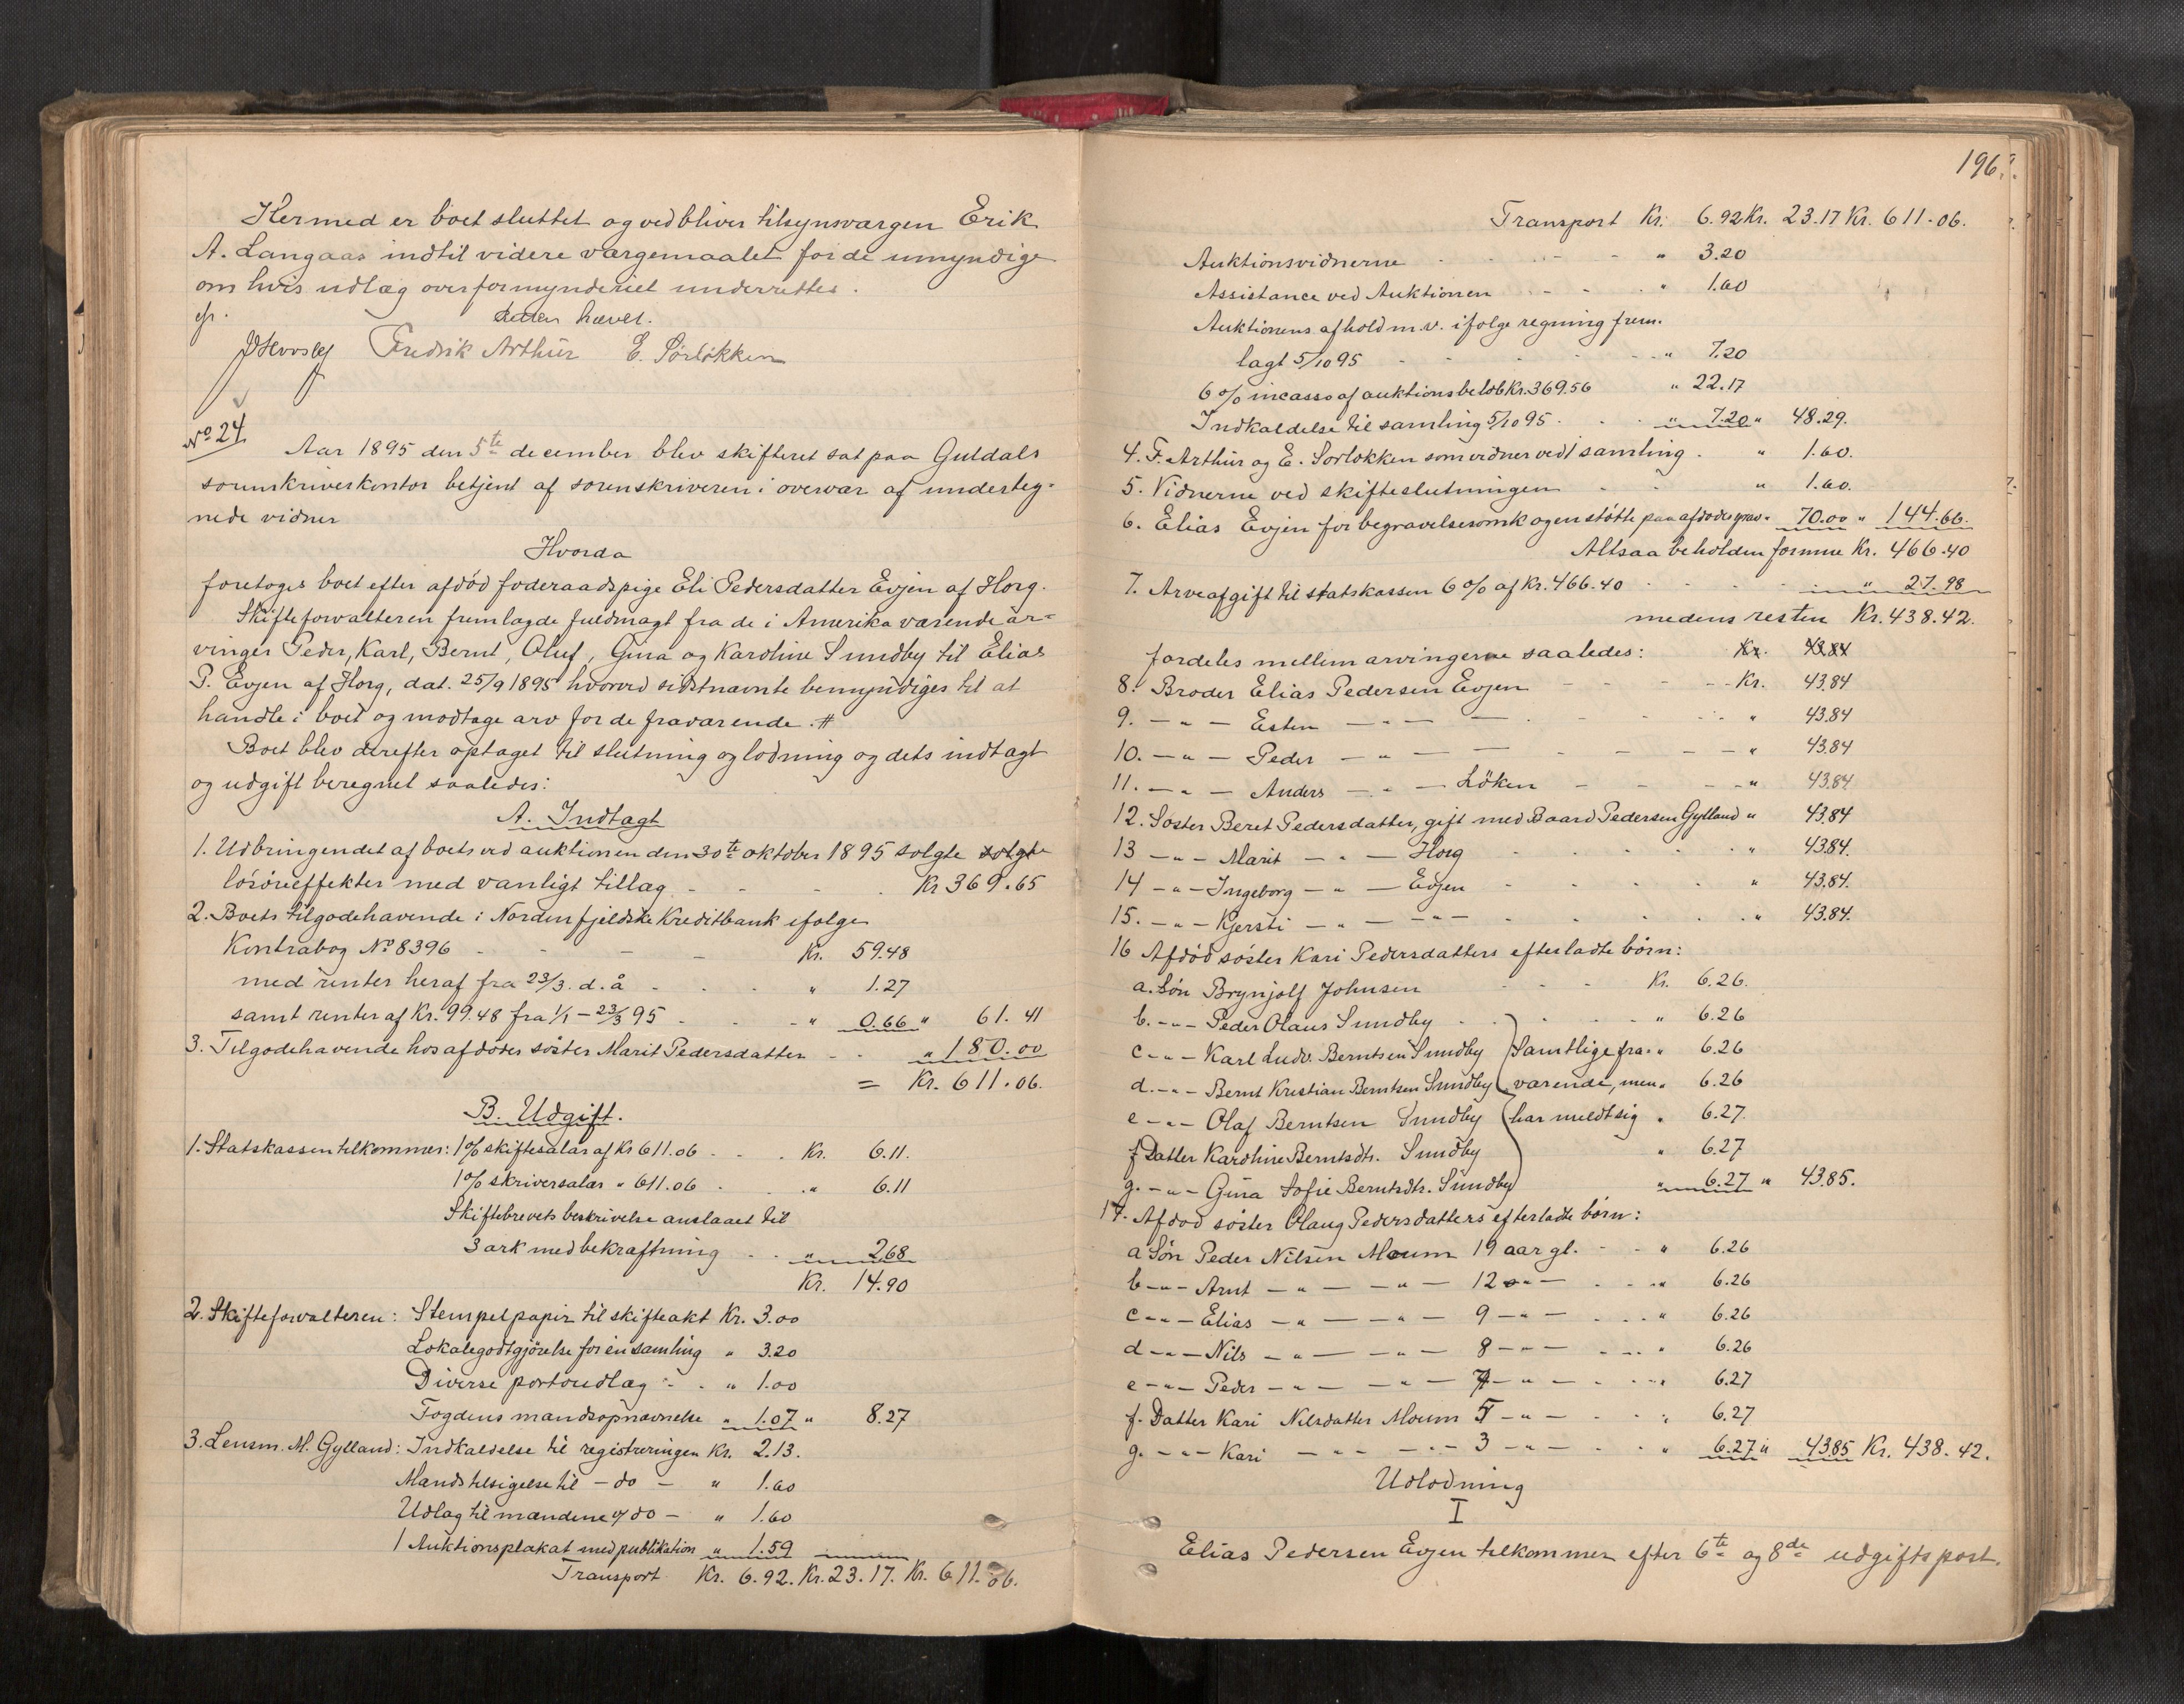 Hermed er boet sluttet og vedbliver tilsynsværgen Erik
A. Langaas indtil videre værgemaalet for de umyndige
om hvis udlæg overformynderiet underrettes.
Retten hævet.
Fredrik Arthur E. Sörlökken
No 24.
Aar 1895 den 5te december blev skifteret sat paa Guldals
sorenskriverkontor betjent af sorenskriveren i overvær af underteg-
nede vidner
Hvorda
foretoges boet efter afdöd föderaadspige Eli Pedersdatter Evjen af Horg.
Skifteforvalteren fremlagde fuldmagt fra de i Amerika værende ar-
vinger Peder, Karl, Bernt, Oluf, Gina og Karoline Sundby til Elias
P. Evjen af Horg, dat. 25/9 1895 hvorved sidstnævnte bemyndiges til at
handle i boet og modtage arv for de fraværende. #
Boet blev derefter optaget til slutning og lodning og dets indtægt
og udgift beregnet saaledes:
A. Indtægt
1. Udbringendet af boets ved auktionen den 30te oktober 1895 solgte solgte
lösöreeffekter med vanligt tillæg - - - . Kr 369.65
2. Boets tilgodehavende i Nordenfjeldske Kreditbank ifölge
Kontrabog No 8396 - - - - Kr. 59.48
med renter heraf fra 23/3 d.å - . . " 1.27
samt renter af Kr. 99.48 fra 1/1 - 23/3 95 - . - " 0.66 " 61.41
3. Tilgodehavende hos afdödes söster Marit Pedersdatter - - " 180.00
= Kr. 611.06.
B. Udgift.
1. Statskassen tilkommer: 1% skiftesalær af Kr 611.06 - . . Kr. 6.11.
1% skriversalær " 611.06 . . " 6.11
Skiftebrevets beskrivelse anslaaet til
3 ark med bekræftning - . " 2.68
Kr. 14.90
2. Skifteforvalteren: Stempelpapir til skifteakt Kr. 3.00
Lokalegodtgjörelse for en samling " 3.20
Diverse portoudlæg - . " 1.00
Fogdens mandsopnævnelse " 1.07 " 8.27
3. Lensm. M. Gylland: Indkaldelse til registreringen Kr. 2.13.
Mandstilsigelse til - do - " 1.60
Udlæg til mændene v/ do - " 1.60
1 Auktionsplakat med publikation " 1.59
Transport Kr. 6.92. Kr. 23.17. Kr. 611.06.
196.
Transport Kr. 6.92 Kr. 23.17 Kr. 611.06.
Auktionsvidnerne . - . - - " 3.20
Assistance ved Auktionen . - - . " 1.60
Auktionens afhold m.v. ifölge regning frem-
lagt 5/10 95 - - . - - " 7.20
6% incasso af auktionsbelöb Kr. 369.56 " 22.17
Indkaldelse til samling 5/10 95 . . . " 7.20 " 48.29.
4. F. Arthur og E. Sörlökken som vidner ved 1 samling . " 1.60.
5. Vidnerne ved skifteslutningen . - " 1.60.
6. Elias Evjen for begravelsesomk og en stötte paa afdödes grav " 70.00 " 144.66.
Altsaa beholden formue Kr. 466.40
7. Arveafgift til statskassen 6% af Kr. 466.40 - - - - " 27.98
medens resten Kr. 438.42.
fordeles mellem arvingerne saaledes: Kr. 43.84
8. Broder Elias Pedersen Evjen - - - - Kr. 43.84
9. - " - Esten - " - - . - . - " 43.84
10. - " - Peder - " - - - - - - " 43.84
11. - " - Anders - " - Löken - - - - " 43.84
12. Söster Beret Pedersdatter, gift med Baard Pedersen Gylland " 43.84
13 - " - Marit - " - Horg - . . . " 43.84.
14 - " - Ingeborg - " - Evjen - . . . " 43.84.
15. - " - Kjersti - " - - " - . . . . " 43.84.
16 Afdöd söster Kari Pedersdatters efterladte börn:
a. Sön Brynjolf Johnsen . - . Kr. 6.26.
b. - " - Peder Olaus Sundby . - . . " 6.26
c - " - Karl Ludv. Berntsen Sundby } Samtlige fra- " 6.26
d. - " - Bernt Kristian Berntsen Sundby } værende, men " 6.26
e - " - Olaf Berntsen Sundby } har meldt sig " 6.27.
f Datter Karoline Berntsdtr. Sundby " 6.27
g. - " - Gina Sofie Berntsdtr. Sundby " 6.27 " 43.85.
17. Afdöd söster Olaug Pedersdatters efterladte börn:
a Sön Peder Nilsen Moum 19 aar gl. - - " 6.26
b - " - Arnt - " - - " - 12 - " - - . . " 6.26
c - " - Elias - " - - " - 9 - " - . . . " 6.26
d - " - Nils - " - - " - 8 - " - - . . " 6.26
e - " - Peder - " - - " - 7 - " - - . - " 6.27
f. Datter Kari Nilsdatter Moum 5 - " - - . " 6.27
g. - " - Kari - " - - " - 3 - " - - . " 6.27 " 43.85 Kr. 438.42.
Udlodning
I
Elias Pedersen Evjen tilkommer efter 6te og 8de udgiftspost.